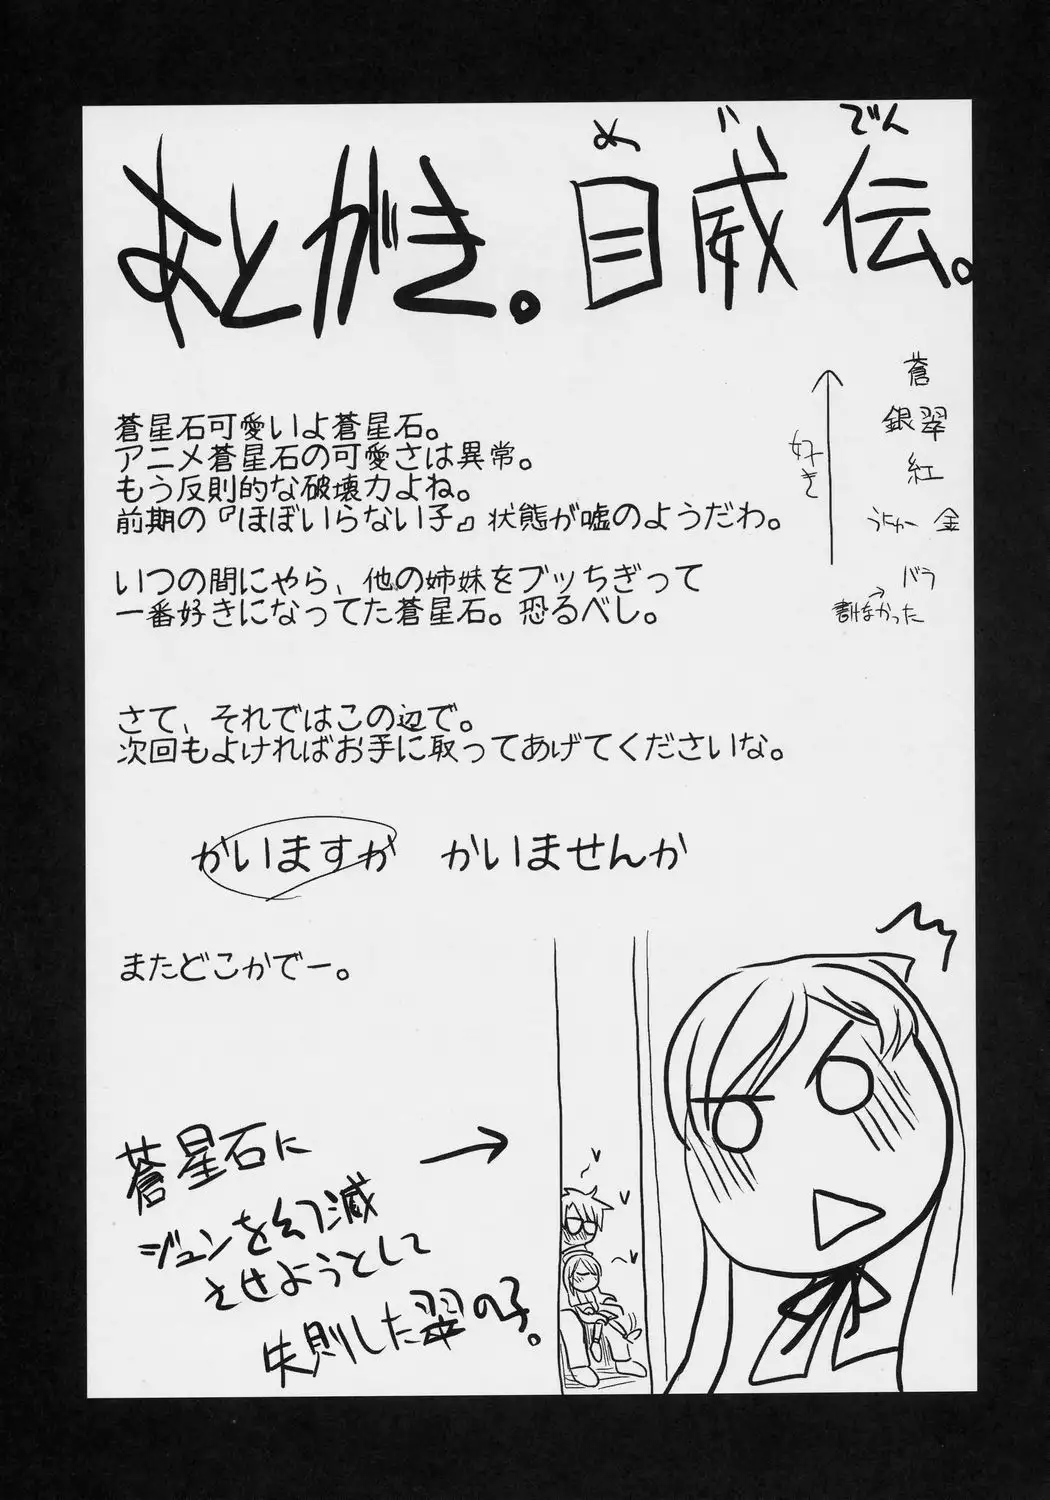 あとがき。目威伝。
め゛でん
蒼星石可愛いよ蒼星石。
アニメ蒼星石の可愛さは異常。
もう反則的な破壊力よね。
前期の『ほぼいらない子』状態が嘘のようだわ。
いつの間にやら、他の姉妹をブッちぎって
一番好きになってた蒼星石。恐るべし。
好き
蒼
銀翠
紅
うにゅー 金
バラ
→
書けなかった
さて、それではこの辺で。
次回もよければお手に取ってあげてくださいな。
かいますか かいませんか
またどこかでー。
蒼星石に
ジュンを幻滅
させようとして
失則した翠の子。